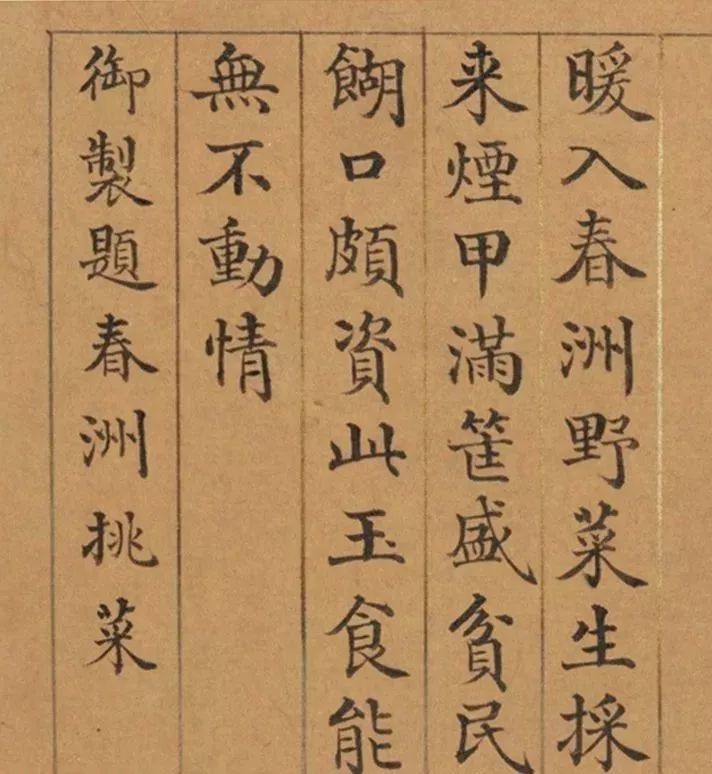 暖入春洲野菜生採
来煙甲滿筐盛貧民
餬口頗資此玉食能
無不動情
御製題春洲挑菜